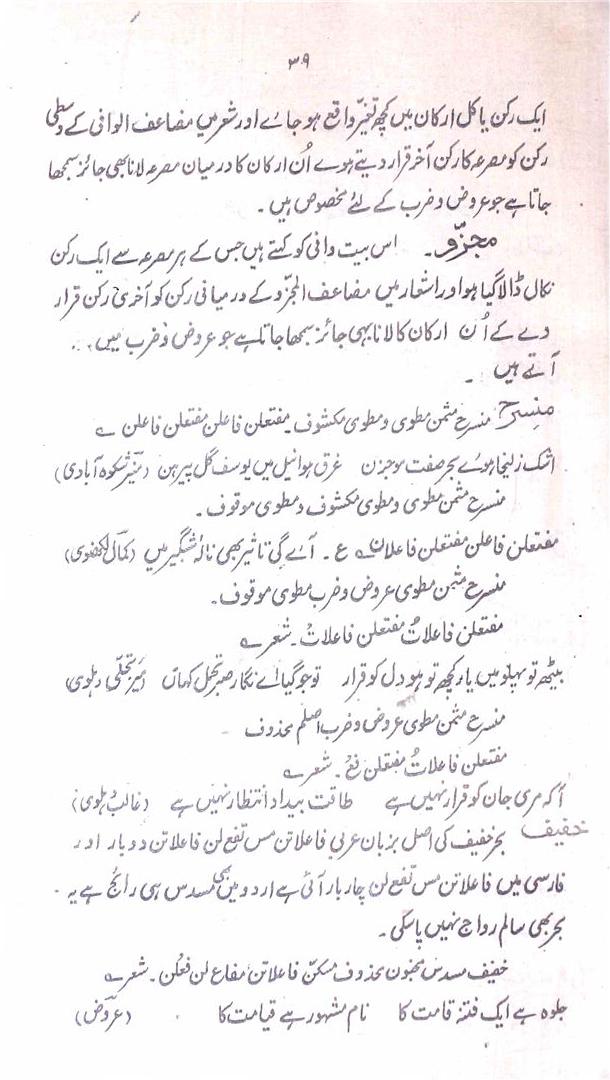 ۳۹
ایک رکن یا کل ارکان میں کچھ تغیّر واقع ہو جائے اور شعر میں مضاعف الوافی کے وسطی
رکن کو مصرعہ کا رکن آخر قرار دیتے ہوے اُن ارکان کا درمیان مصرعہ لانا بھی جائز سمجھا
جاتا ہے جو عروض و ضرب کے لئے مخصوص ہیں ۔
مجزّو ۔ اس بیت وافی کو کہتے ہیں جس کے ہر مصرعہ سے ایک رکن
نکال ڈالا گیا ہو اور اشعار میں مضاعف المجزّو کے درمیانی رکن کو آخری رکن قرار
دے کے اُن ارکان کا لانا بھی جائز سمجھا جاتا ہے جو عروض و ضرب میں
آتے ہیں ۔
منسرح منسرح مثمن مطوی و مطوی مکشوف ۔ مفتعلن فاعلن مفتعلن فاعلن ؎
اشک زلیخا ہوے بحر صفت موجزن غرق ہوا نیل میں یوسف گل پیرہن (منیر شکوہ آبادی)
منسرح مثمن مطوی و مطوی مکشوف و مطوی موقوف ۔
مفتعلن فاعلن مفتعلن فاعلان ؎ ع ۔ آے گی تاثیر بھی نالۂ شبگیر میں (کمال لکھنوی)
منسرح مثمن مطوی عروض و ضرب مطوی موقوف ۔
مفتعلن فاعلاتُ مفتعلن فاعلاتْ ۔ شعر ؎
بیٹھ تو پہلو میں یار کچھ تو ہو دل کو قرار تو جو گیا اے نگار صبر تحمل کہاں (میر تجلّی دہلوی)
منسرح مثمن مطوی عروض و ضرب اصلم محذوف
مفتعلن فاعلاتُ مفتعلن فع ۔ شعر ؎
آ کہ مری جان کو قرار نہیں ہے طاقت بیداد انتظار نہیں ہے (غالب دہلوی)
خفیف بحر خفیف کی اصل بزبان عربی فاعلاتن مس تفع لن فاعلاتن دو بار اور
فارسی میں فاعلاتن مس تفع لن چار بار آئی ہے اردو میں بھی مسدس ہی رائج ہے یہ
بحر بھی سالم رواج نہیں پا سکی ۔
خفیف مسدس مخبون محذوف مسکّن فاعلاتن مفاع لن فعلن ۔ شعر ؎
جلوہ ہے ایک فتنۂ قامت کا نام مشہور ہے قیامت کا (عروض)